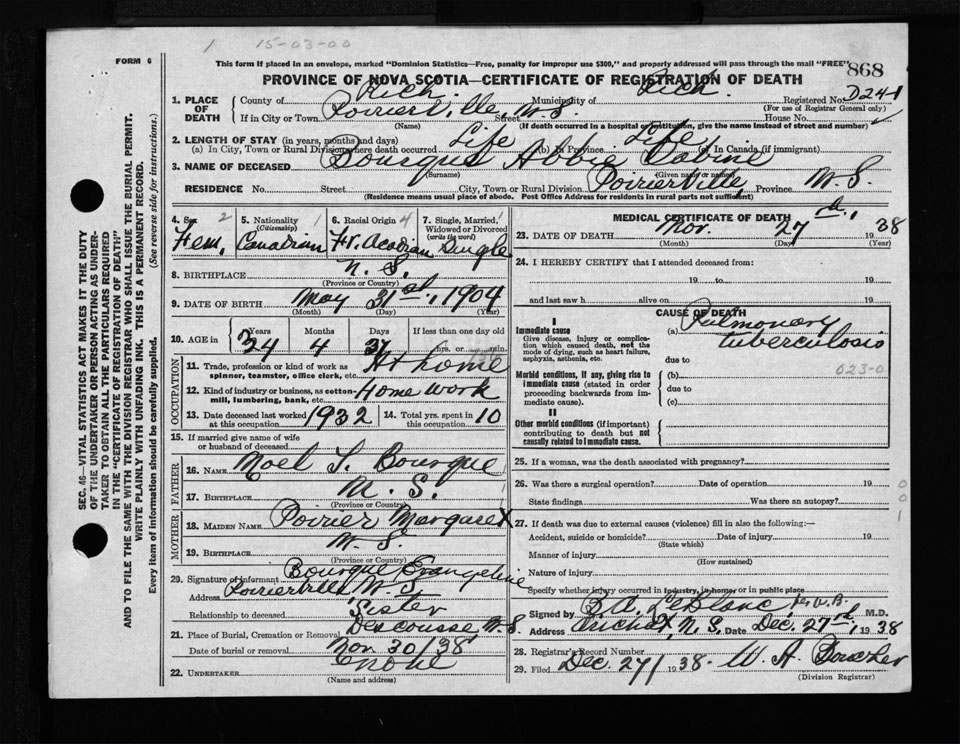 1 15-03-00
FORM 6
This form if placed in an envelope, marked "Dominion Statistics—Free, penalty for improper use $300," and properly addressed will pass through the mail "FREE"
868
PROVINCE OF NOVA SCOTIA—CERTIFICATE OF REGISTRATION OF DEATH
1. PLACE OF DEATH
County of Rich. Municipality of Rich. Registered No. D241
(For use of Registrar General only)
If in City or Town Poirierville, N.S. Street House No.
(Name) (If death occurred in a hospital or institution, give the name instead of street and number)
2. LENGTH OF STAY (in years, months and days)
(a) In City, Town or Rural Division where death occurred Life (b) In Province Life (c) In Canada (if immigrant)
3. NAME OF DECEASED Bourque Abbie Sabine
(Surname) (Given name or names)
RESIDENCE No. Street City, Town or Rural Division Poirierville, Province N.S.
(Residence means usual place of abode. Post Office Address for residents in rural parts not sufficient)
SEC. 46—VITAL STATISTICS ACT MAKES IT THE DUTY
OF THE UNDERTAKER OR PERSON ACTING AS UNDER-
TAKER TO OBTAIN ALL THE PARTICULARS REQUIRED
IN THE "CERTIFICATE OF REGISTRATION OF DEATH"
AND TO FILE THE SAME WITH THE DIVISION REGISTRAR WHO SHALL ISSUE THE BURIAL PERMIT.
WRITE PLAINLY WITH UNFADING INK. THIS IS A PERMANENT RECORD.
Every item of information should be carefully supplied. (See reverse side for instructions.)
4. Sex 2 5. Nationality 1 6. Racial Origin 4 7. Single, Married, 1
(Citizenship) Widowed or Divorced
(write the word)
Fem. Canadian Fr. Acadian Single
8. BIRTHPLACE N.S.
(Province or Country)
9. DATE OF BIRTH May 31st, 1904
(Month) (Day) (Year)
10. AGE in Years Months Days If less than one day old
34 4 hrs. or min.
OCCUPATION
11. Trade, profession or kind of work as
spinner, teamster, office clerk, etc. At home
12. Kind of industry or business, as cotton-
mill, lumbering, bank, etc. Home work
13. Date deceased last worked
at this occupation 1932
14. Total yrs. spent in
this occupation 10
15. If married give name of wife
or husband of deceased
FATHER
16. NAME Noel S. Bourque
17. BIRTHPLACE N.S.
(Province or Country)
MOTHER
18. MAIDEN NAME Poirier Margaret
19. BIRTHPLACE N.S.
(Province or Country)
20. Signature of informant Bourque Evangeline
Address Poirierville N.S.
Relationship to deceased Sister
21. Place of Burial, Cremation or Removal Descousse, N.S.
Date of burial or removal Nov 30/38
22. UNDERTAKER none
(Name and address)
MEDICAL CERTIFICATE OF DEATH
23. DATE OF DEATH Nov. 27th, 1938
(Month) (Day) (Year)
24. I HEREBY CERTIFY that I attended deceased from:
19 to 19
and last saw h alive on 19
CAUSE OF DEATH
I
Immediate cause
Give disease, injury or complication which caused death, not the mode of dying, such as heart failure, asphyxia, asthenia, etc.
(a) Pulmonary
tuberculosis
due to
023-0
Morbid conditions, if any, giving rise to immediate cause (stated in order proceeding backwards from immediate cause).
(b)
due to
(c)
II
Other morbid conditions (if important) contributing to death but not causally related to immediate cause.
25. If a woman, was the death associated with pregnancy?
26. Was there a surgical operation? Date of operation 19 0
State findings Was there an autopsy? 0
1
27. If death was due to external causes (violence) fill in also the following:—
Accident, suicide or homicide? Date of injury 19
(State which)
Manner of injury
(How sustained)
Nature of injury
Specify whether injury occurred in industry, in home or in public place
Signed by B.A. LeBlanc M.D.
Address Arichat, N.S. Date Dec. 27th, 1938
28. Registrar's Record Number
29. Filed Dec. 27/ 1938. W. A.
(Division Registrar)